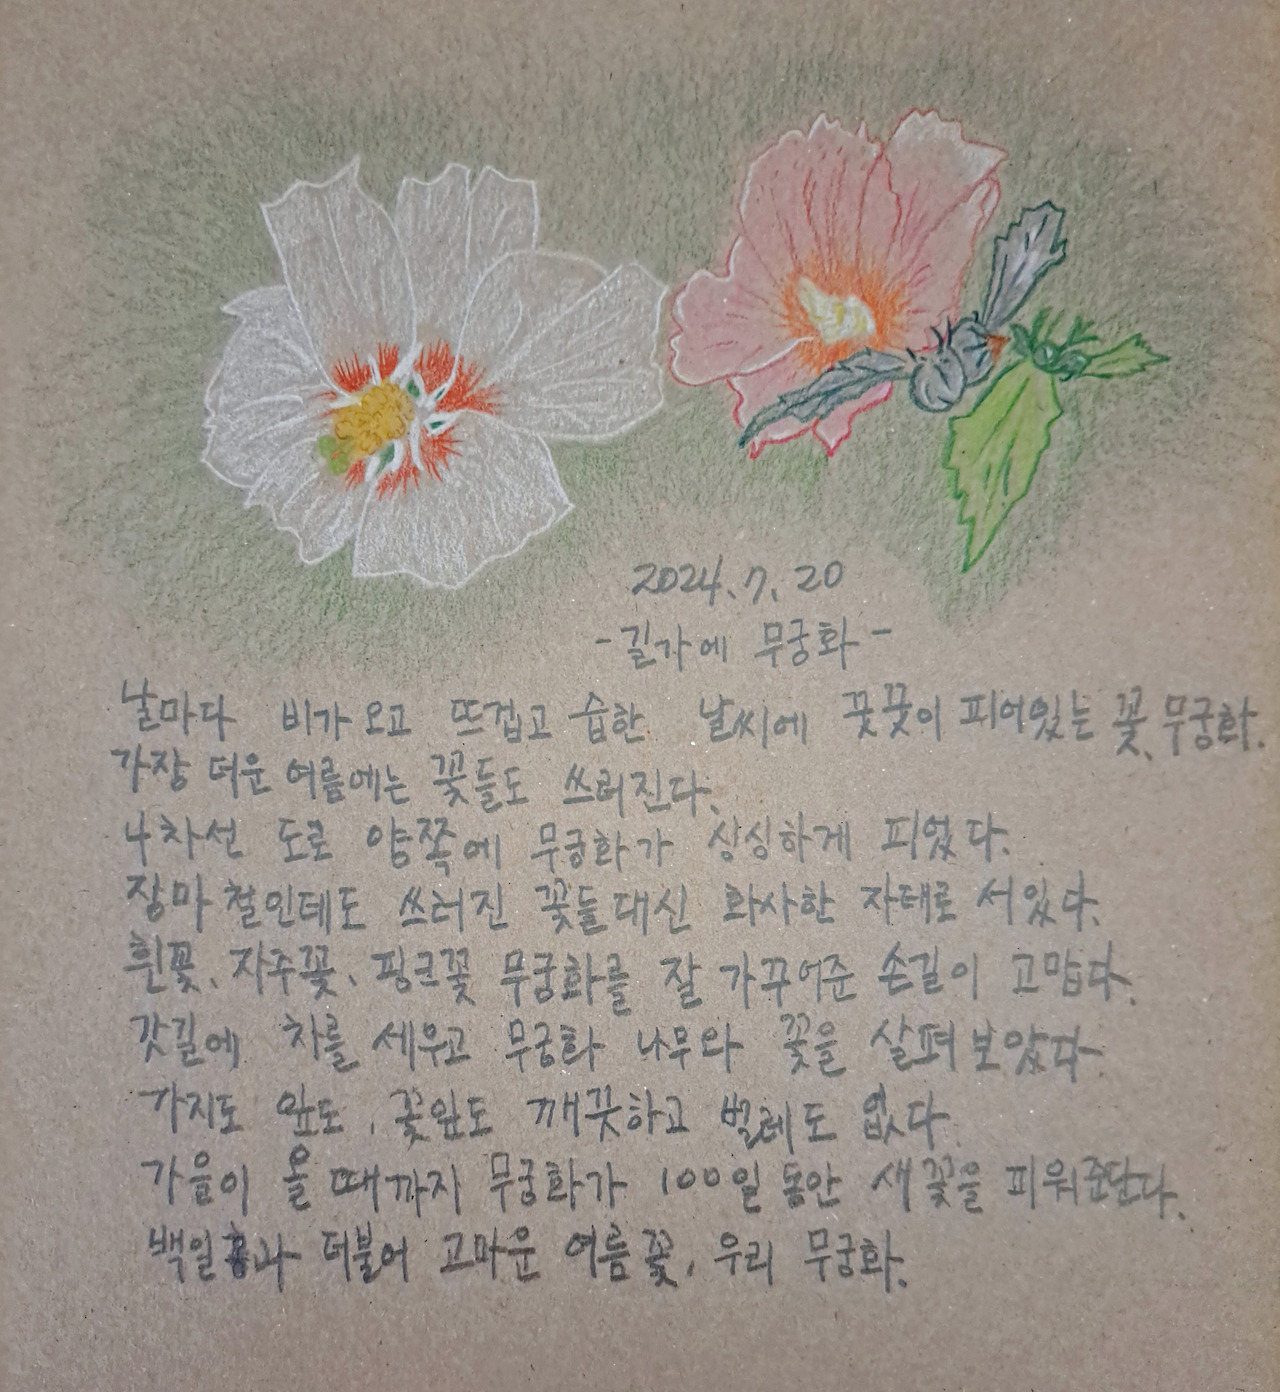 2024.7.20
-길가에 무궁화-
날마다 비가오고 뜨겁고 습한 날씨에 꿋꿋이 피어있는 꽃, 무궁화.
가장 더운 여름에는 꽃들도 쓰러진다.
4차선 도로 양쪽에 무궁화가 싱싱하게 피었다.
장마 철인데도 쓰러진 꽃들대신 화사한 자태로 서있다.
흰꽃, 자주꽃, 핑크꽃 무궁화를 잘 가꾸어준 손길이 고맙다.
갓길에 차를 세우고 무궁화 나무와 꽃을 살펴보았다.
가지도 잎도, 꽃잎도 깨끗하고 벌레도 없다.
가을이 올 때까지 무궁화가 100일 동안 새꽃을 피워준단다.
백일홍과 더불어 고마운 여름꽃, 우리 무궁화.